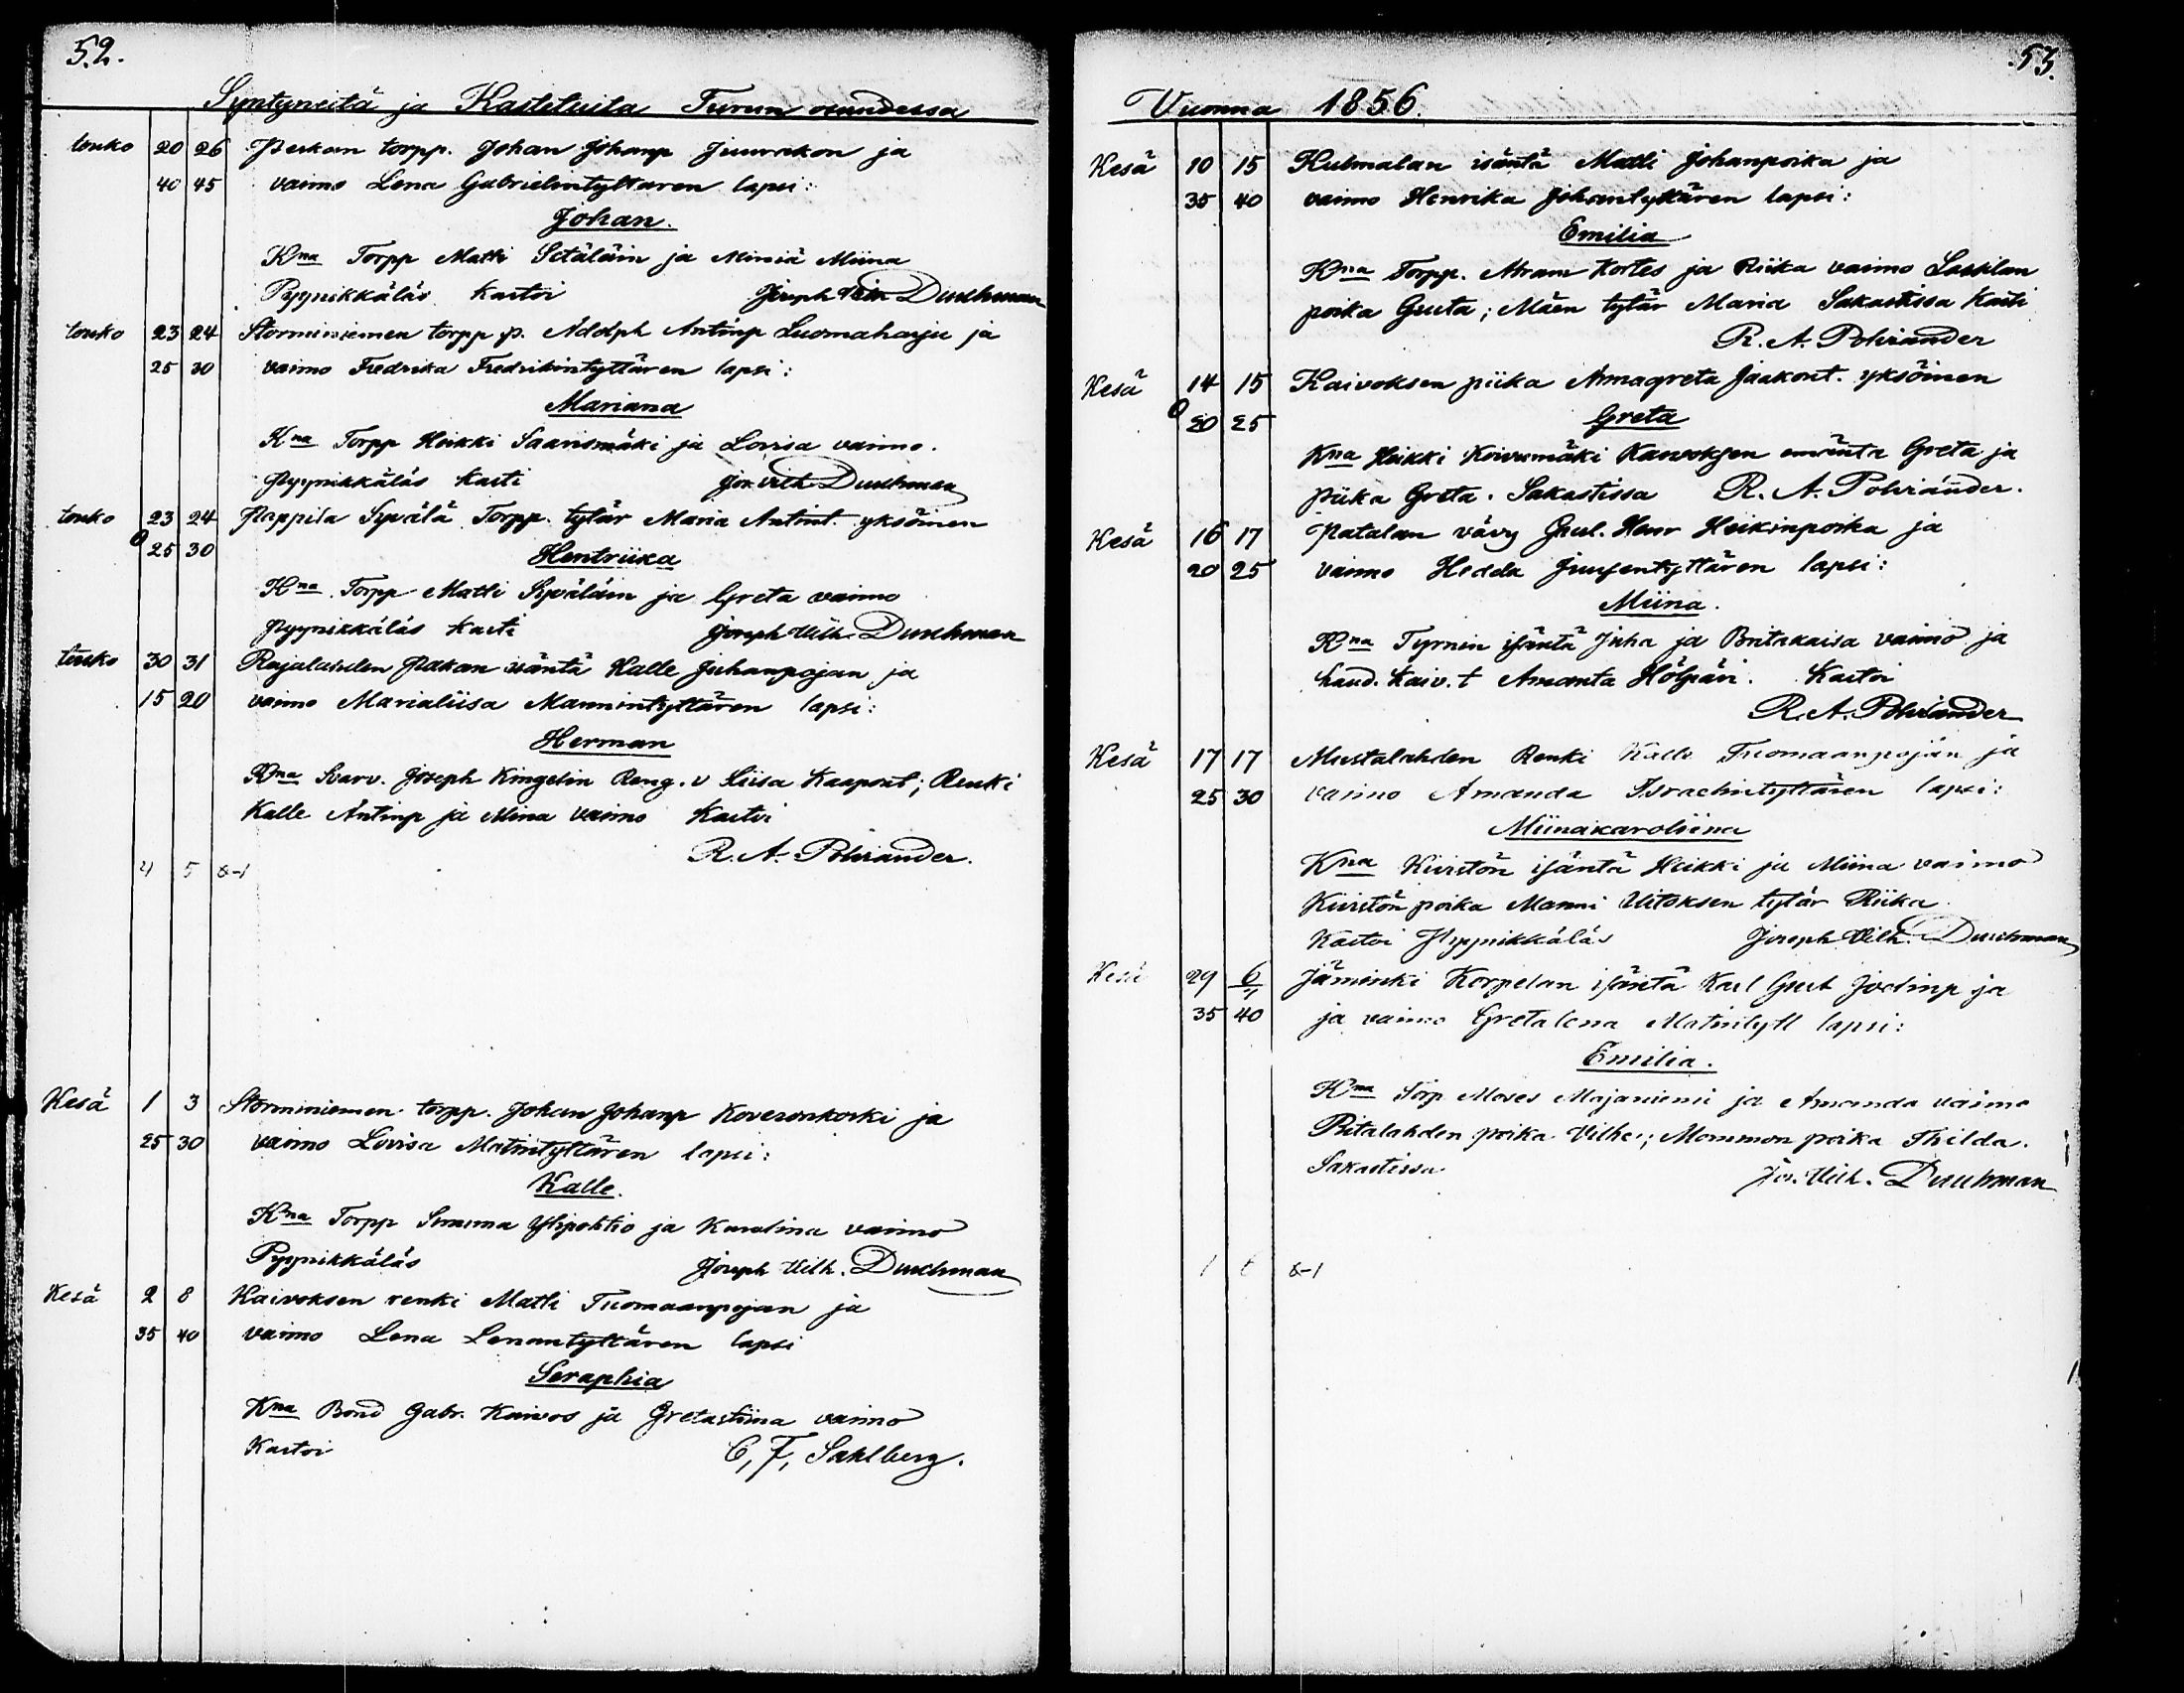 52.
Syntyneitä ja Kastetuita Turun
touko 20 26 Peskan torpp. Johan Johanp Juurakon ja
40 45 vaimo Lena Gabrielintyttaren lapsi:
Johan.
Kna Torpp Matti Setäläin ja Miniä Miina
Pyynikkäläs kastoi Joseph Duuhman
touko 23 24 Storminiemen torpp p. Adolph Antinp Luomaharju ja
25 30 vaimo Fredrika Fredrikintyttären lapsi:
Mariana
Kna Torpp Heikki Saarismäki ja Lovisa vaimo.
Pyynikkäläs kasti Jos. Vilh. Duuhman
touko 23 24 Pappila Syvälä Torpp. tytär Maria Antint. yksöinen
0 25 30 Hentriika
Kna Torpp Matti Syväläin ja Greta vaimo
Pyynikkäläs kasti Joseph Vilh. Duuhman
touko 30 31 Rajalahden Pakan isäntä Kalle Juhanpojan ja
15 20 vaimo Marialiisa Mannintyttären lapsi:
Herman
Kna Joseph Kingelin Reng. v Liisa Kaapont; Renki
Kalle Antinp ja Mina vaimo Kastoi
R. A. Polviander.
4 5 &-1
Kesä 1 3 Storminiemen torpp. Johan Johanp Koveronkoski ja
25 30 vaimo Lovisa Matintyttären lapsi:
Kalle.
Kna Torpp Simuna Ylipohtio ja Karolina vaimo
Pyynikkäläs Joseph Vilh. Duuhman
Kesä 2 8 Kaivoksen renki Matti Tuomaanpojan ja
35 40 vaimo Lena Lenantyttären lapsi
Seraphia
Kna Bond Gabr. Kaivos ja Gretastiina vaimo
Kastoi C, F, Sahlberg.
53.
Vuonna 1856.
Kesä 10 15 Kulmalan isäntä Matti Johanpoika ja
35 40 vaimo Henrika Johanintyttären lapsi:
Emilia
Kna Torpp. Abram Kortes ja Riika vaimo Laskilan
poika Gusta; Mäen tytär Maria Sakastissa Kasti
R. A. Polviander
Kesä 14 15 Kaivoksen piika Annagreta Jaakont. yksöinen
0 20 25 Greta
Kna Heikki Koivumäki Kaivoksen emäntä Greta ja
piika Greta. Sakastissa R. A. Polviander.
Kesä 16 17 Patalan vävy Henr Heikinpoika ja
20 25 vaimo Hedda Juusentyttären lapsi:
Miina.
Kna Tyrnin isäntä Juha ja Britakaisa vaimo ja
Kaiv. t Amanta Hölpäri. Kastoi
R. A. Polviander
Kesä 17 17 Mustalahden Renki Kalle Tuomaanpojan ja
25 30 vaimo Amanda Israelintyttären lapsi:
Miinakaroliina
Kna Kiviston isäntä Heikki ja Miina vaimo
Kiviston poika Manni Uitoksen tytär Riika
Kastoi Pyynikkäläs Joseph Vilh. Duuhman
Kesä 29 6/7 Jäminki Korpelan isäntä Karl Gust Joelinp ja
35 40 ja vaimo Gretalena Matintytt lapsi:
Emilia.
Kna Torp Moses Majaniemi ja Amanda vaimo
Ritalahden poika Vilhe; Mommon poika Thilda.
Sakastissa Jos. Vilh. Duuhman
1 6 &-1